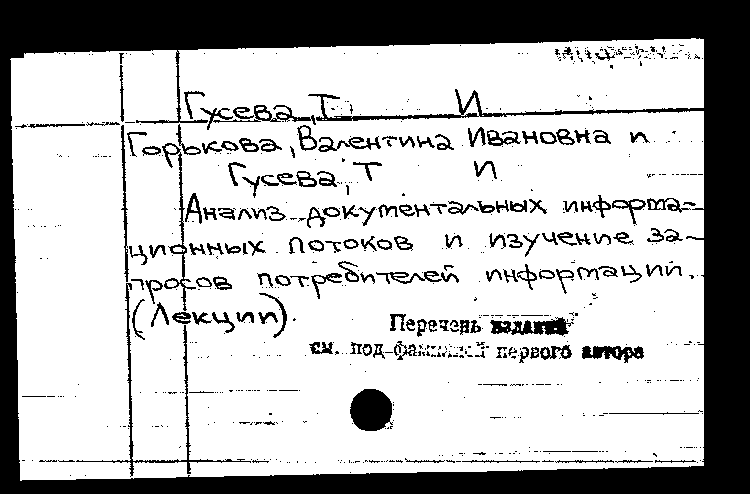 Гусева, Т И
Горькова, Валентина Ивановна и
Гусева, Т И
Анализ документальных информа-
ционных потоков и изучение за-
просов потребителей информации.
(Лекции).
Перечень изданий
см. под фамилией первого автора